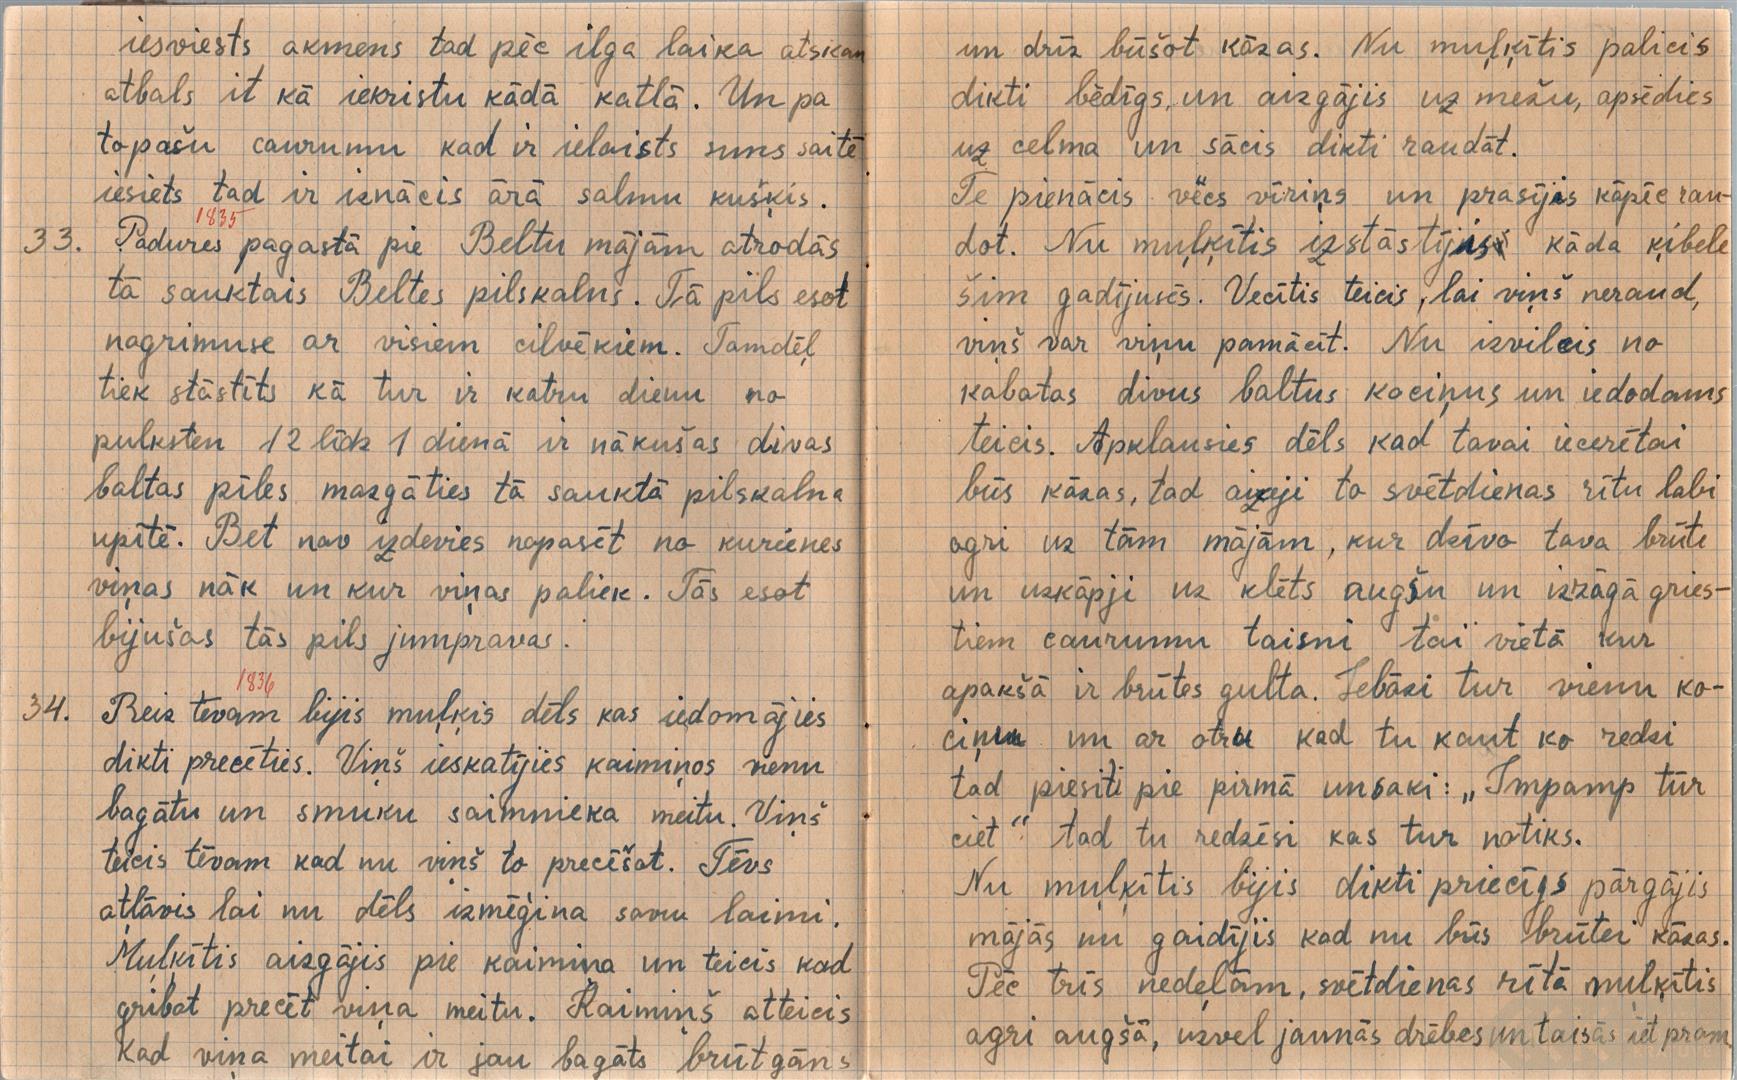 iesviests akmens tad pēc ilga laika atskan
atbals it kā iekristu kādā katlā. Un pa
topašu caurumu kad ir ielaists suns saitē
iesiets tad ir iznācis ārā salmu kušķis.
1835
33. Padures pagastā pie Beltu mājām atrodās
tā sauktais Beltes pilskalns. Tā pils esot
nogrimuse ar visiem cilvēkiem. Tamdēļ
tiek stāstīts kā tur ir katru dienu no
pulksten 12 līdz 1 dienā ir nākušas divas
baltas pīles mazgāties tā sauktā pilskalna
upītē. Bet nav izdevies nopasēt no kurienes
viņas nāk un kur viņas paliek. Tās esot
bijušas tās pils jumpravas.
1836
34. Reiz tēvam bijis muļķis dēls kas iedomājies
dikti precēties. Viņš ieskatījies kaimiņos vienu
bagātu un smuku saimnieka meitu. Viņš
teicis tēvam kad nu viņš to precēšot. Tēvs
atļāvis lai nu dēls izmēģina savu laimi.
Muļķītis aizgājis pie kaimiņa un teicis kad
gribot precēt viņa meitu. Kaimiņš atteicis
kad viņa meitai ir jau bagāts brūtgāns
un drīz būšot kāzas. Nu muļķītis palicis
dikti bēdīgs, un aizgājis uz mežu, apsēdies
uz celma un sācis dikti raudāt.
Te pienācis vecs vīriņs un prasījis kāpēc rau-
dot. Nu muļķītis izstāstījis kāda ķibele
šim gadījusēs. Vecītis teicis, lai viņš neraud,
viņš var viņu pamācīt. Nu izvilcis no
kabatas divus baltus kociņus un iedodams
teicis. Apklausies dēls kad tavai iecerētai
būs kāzas, tad aizeji to svētdienas rītu labi
agri uz tām mājām, kur dzīvo tava brūte
un uzkāpji uz klēts augšu un izzāgā gries-
tiem caurumu taisni tai vietā kur
apakšā ir brūtes gulta. Iebāzi tur vienu ko-
ciņu un ar otru kad tu kaut ko redzi
tad piesiti pie pirmā un saki: „Impamp tūr
ciet“ tad tu redzēsi kas tur notiks.
Nu muļķītis bijis dikti priecīgs pārgājis
mājās nu gaidījis kad nu būs brūtei kāzas.
Pēc trīs nedeļām, svētdienas rītā muļķītis
agri augšā, uzvel jaunās drēbes un taisās iet prom